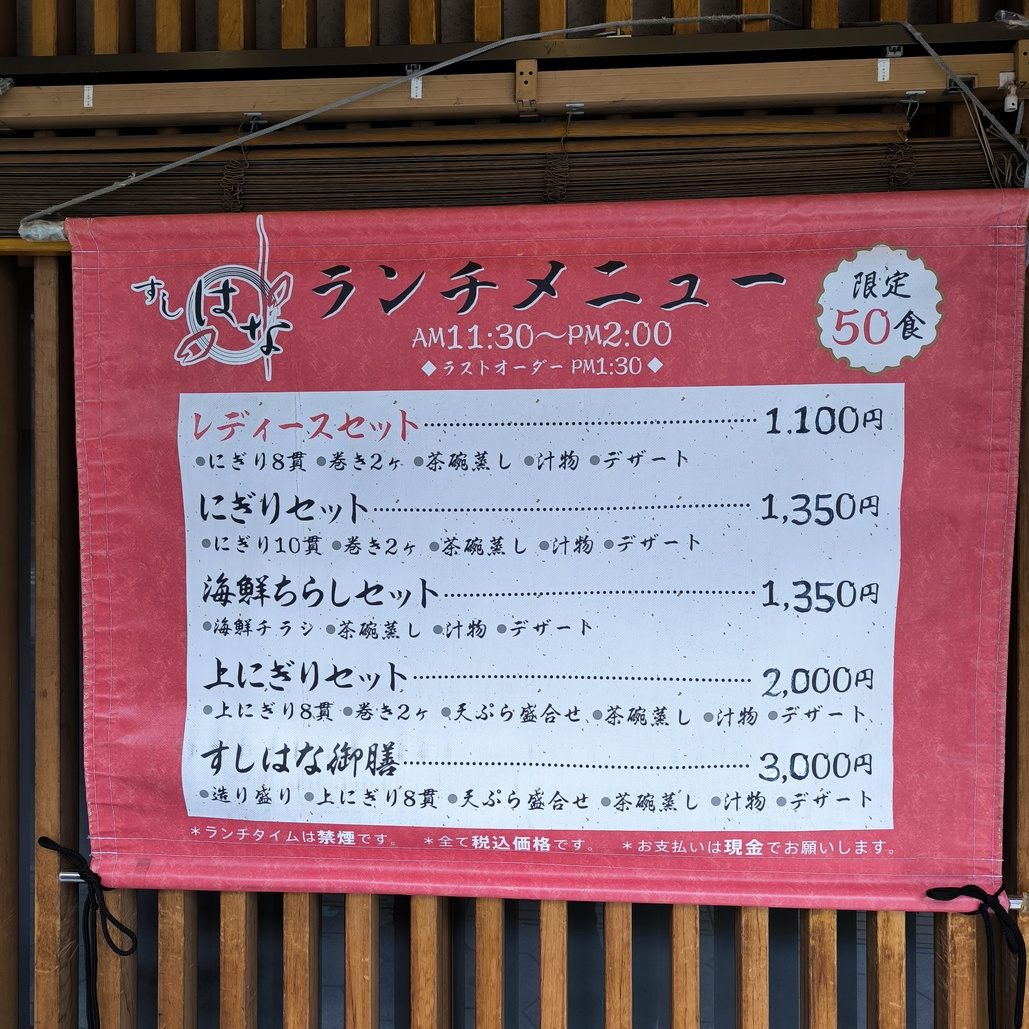 すし はな
ランチメニュー
AM11:30～PM2:00
◆ラストオーダー PM1:30◆
限定
50食
レディースセット 1.100円
●にぎり8貫 ●巻き2ヶ ●茶碗蒸し ●汁物 ●デザート
にぎりセット 1,350円
●にぎり10貫 ●巻き2ヶ ●茶碗蒸し ●汁物 ●デザート
海鮮ちらしセット 1,350円
●海鮮チラシ ●茶碗蒸し ●汁物 ●デザート
上にぎりセット 2,000円
●上にぎり8貫 ●巻き2ヶ ●天ぷら盛合せ ●茶碗蒸し ●汁物 ●デザート
すしはな御膳 3,000円
●造り盛り ●上にぎり8貫 ●天ぷら盛合せ ●茶碗蒸し ●汁物 ●デザート
＊ランチタイムは禁煙です。 ＊全て税込価格です。 ＊お支払いは現金でお願いします。